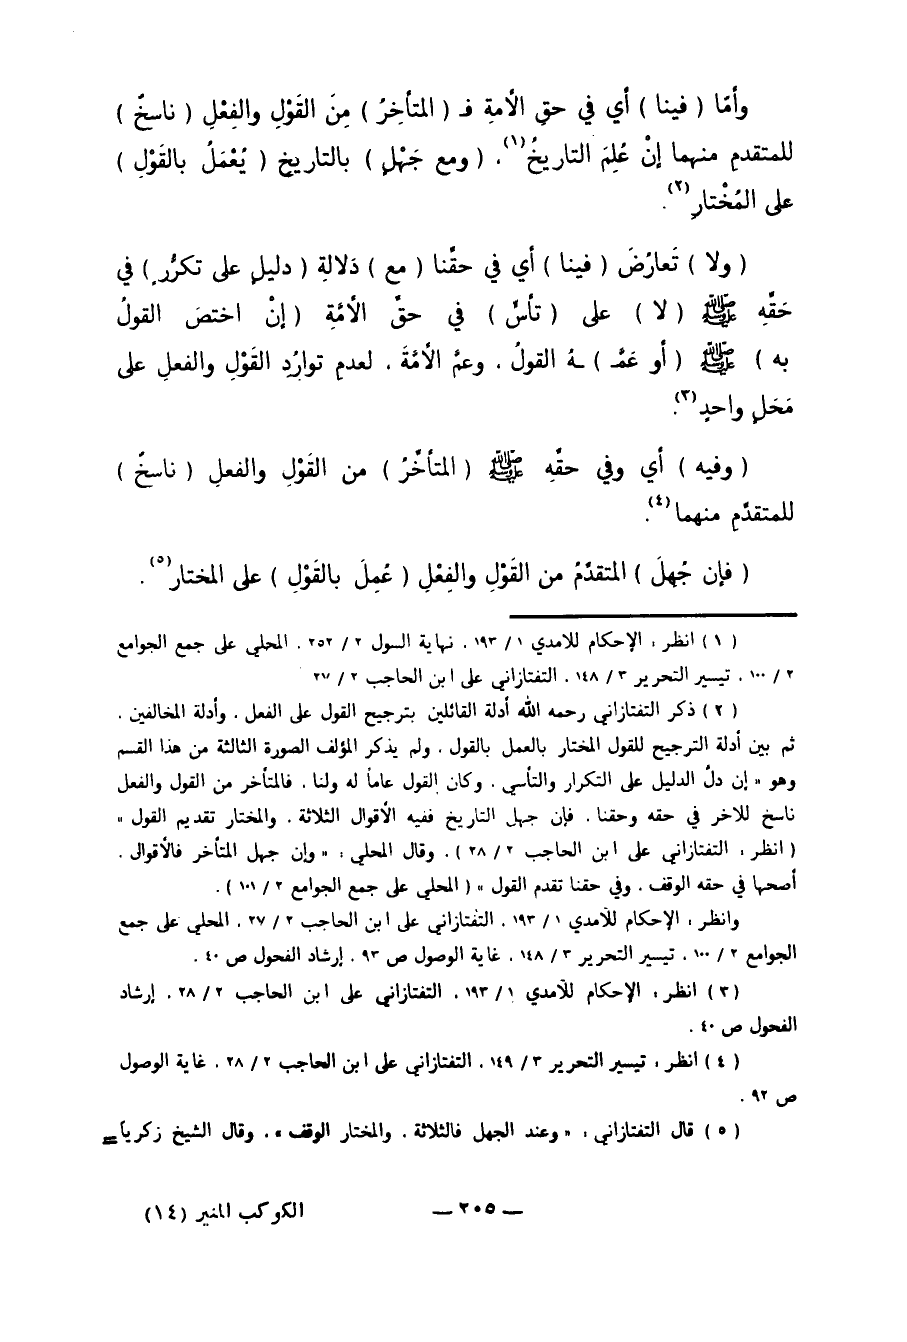 وأمّا ( فينا ) أي في حقِ الأمةِ فـ ( المتأخِرُ ) مِنَ القَوْلِ والفِعْلِ ( ناسخٌ )
للمتقدمِ منهما إنْ عُلِمَ التاريخُ(١) . ( ومع جَهْلٍ ) بالتاريخِ ( يُعْمَلُ بالقَوْلِ )
على المُخْتارِ(٢) .
( ولا ) تَعارُضَ ( فينا ) أي في حقِّنا ( مع ) دَلالةِ ( دليلٍ على تكرُّرٍ ) في
حَقِّهِ ﷺ ( لا ) على ( تأسٍّ ) في حقِّ الأمّةِ ( إنْ اختصَ القولُ
به ) ﷺ ( أو عَمَّـ ) ـهُ القولُ . وعمَّ الأمّةَ . لعدمِ توارُدِ القَوْلِ والفعلِ على
مَحَلٍ واحدٍ(٣) .
( وفيه ) أي وفي حقِّهِ ﷺ ( المتأخّرُ ) من القَوْلِ والفعلِ ( ناسخٌ )
للمتقدّمِ منهما(٤) .
( فإن جُهلَ ) المتقدّمُ من القَوْلِ والفِعْلِ ( عُمِلَ بالقَوْلِ ) على المختارِ(٥) .
( ١ ) انظر : الإحكام للآمدي ١ / ١٩٣ . نهاية السول ٢ / ٢٥٢ . المحلي على جمع الجوامع
٢ / ١٠٠ . تيسير التحرير ٣ / ١٤٨ . التفتازاني على ابن الحاجب ٢ / ٢٧
( ٢ ) ذكر التفتازاني رحمه الله أدلة القائلين بترجيح القول على الفعل . وأدلة المخالفين .
ثم بين أدلة الترجيح للقول المختار بالعمل بالقول . ولم يذكر المؤلف الصورة الثالثة من هذا القسم
وهو « إن دلّ الدليل على التكرار والتأسي . وكان القول عاماً له ولنا . فالمتأخر من القول والفعل
ناسخ للآخر في حقه وحقنا . فإن جهل التاريخ ففيه الأقوال الثلاثة . والمختار تقديم القول »
( انظر : التفتازاني على ابن الحاجب ٢ / ٢٨ ) . وقال المحلي : « وإن جهل المتأخر فالأقوال .
أصحها في حقه الوقف . وفي حقنا تقدم القول » ( المحلي على جمع الجوامع ٢ / ١٠١ ) .
وانظر : الإحكام للآمدي ١ / ١٩٣ . التفتازاني على ابن الحاجب ٢ / ٢٧ . المحلي على جمع
الجوامع ٢ / ١٠٠ . تيسير التحرير ٣ / ١٤٨ . غاية الوصول ص ٩٣ . إرشاد الفحول ص ٤٠ .
( ٣ ) انظر : الإحكام للآمدي ١ / ١٩٣ . التفتازاني على ابن الحاجب ٢ / ٢٨ . إرشاد
الفحول ص ٤٠ .
( ٤ ) انظر : تيسير التحرير ٣ / ١٤٩ . التفتازاني على ابن الحاجب ٢ / ٢٨ . غاية الوصول
ص ٩٢ .
( ٥ ) قال التفتازاني : « وعند الجهل فالثلاثة . والمختار الوقف » . وقال الشيخ زكريا =
— ٢٠٥ — الكوكب المنير (١٤)